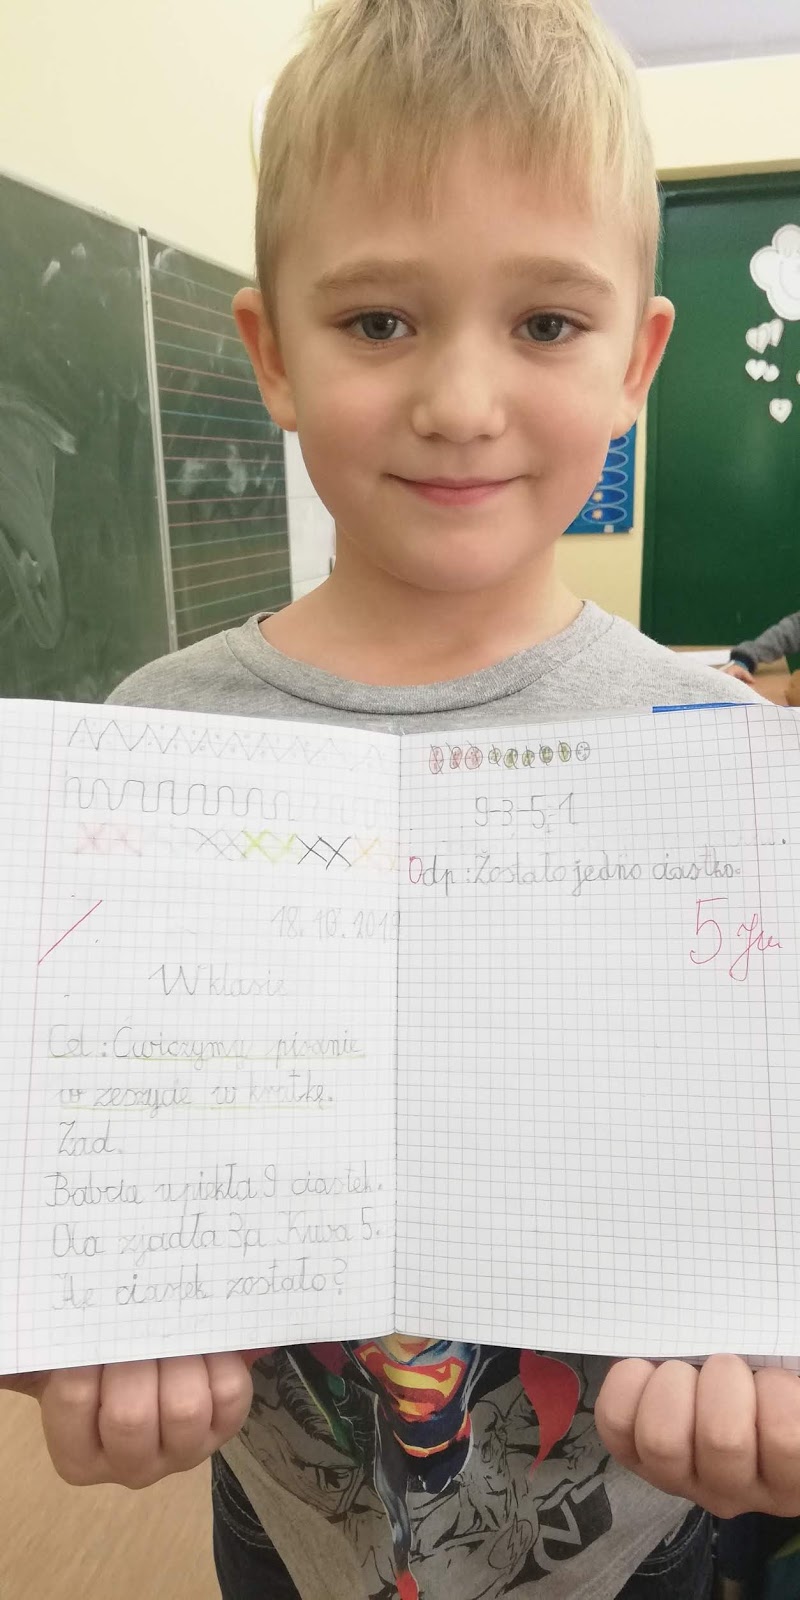 18.10.2019
W klasie
Cel: Ćwiczymy pisanie
w zeszycie w kratkę.
Zad.
Babcia upiekła 9 ciastek.
Ola zjadła 3, a Kuba 5.
Ile ciastek zostało?
9-3-5=1
Odp: Zostało jedno ciastko.
5